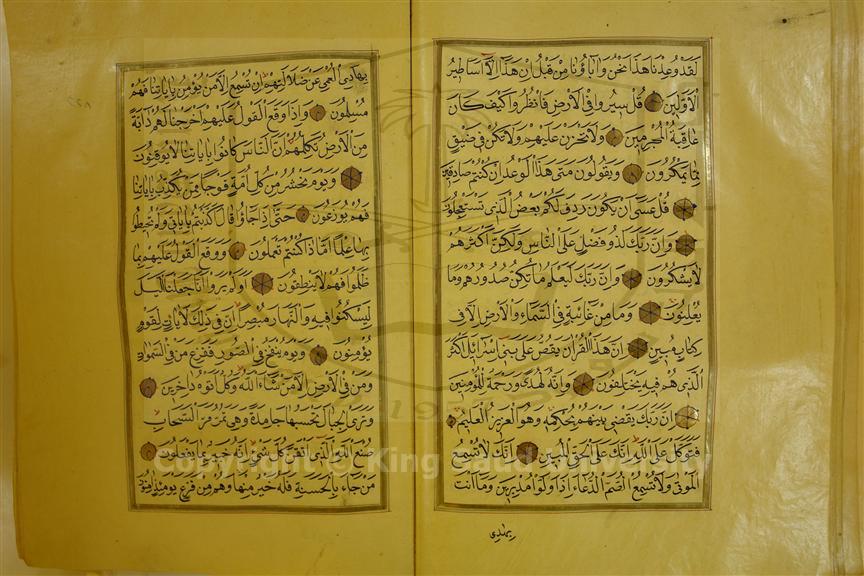 لَقَدْ وُعِدْنَا هَذَا نَحْنُ وَآبَاؤُنَا مِنْ قَبْلُ إِنْ هَذَا إِلَّا أَسَاطِيرُ
الْأَوَّلِينَ قُلْ سِيرُوا فِي الْأَرْضِ فَانْظُرُوا كَيْفَ كَانَ
عَاقِبَةُ الْمُجْرِمِينَ وَلَا تَحْزَنْ عَلَيْهِمْ وَلَا تَكُنْ فِي ضَيْقٍ
مِمَّا يَمْكُرُونَ وَيَقُولُونَ مَتَى هَذَا الْوَعْدُ إِنْ كُنْتُمْ صَادِقِينَ
قُلْ عَسَى أَنْ يَكُونَ رَدِفَ لَكُمْ بَعْضُ الَّذِي تَسْتَعْجِلُونَ
وَإِنَّ رَبَّكَ لَذُو فَضْلٍ عَلَى النَّاسِ وَلَكِنَّ أَكْثَرَهُمْ
لَا يَشْكُرُونَ وَإِنَّ رَبَّكَ لَيَعْلَمُ مَا تُكِنُّ صُدُورُهُمْ وَمَا
يُعْلِنُونَ وَمَا مِنْ غَائِبَةٍ فِي السَّمَاءِ وَالْأَرْضِ إِلَّا فِي
كِتَابٍ مُبِينٍ إِنَّ هَذَا الْقُرْآنَ يَقُصُّ عَلَى بَنِي إِسْرَائِلَ أَكْثَرَ
الَّذِي هُمْ فِيهِ يَخْتَلِفُونَ وَإِنَّهُ لَهُدًى وَرَحْمَةٌ لِلْمُؤْمِنِينَ
إِنَّ رَبَّكَ يَقْضِي بَيْنَهُمْ بِحُكْمِهِ وَهُوَ الْعَزِيزُ الْعَلِيمُ
فَتَوَكَّلْ عَلَى اللَّهِ إِنَّكَ عَلَى الْحَقِّ الْمُبِينِ إِنَّكَ لَا تُسْمِعُ
الْمَوْتَى وَلَا تُسْمِعُ الصُّمَّ الدُّعَاءَ إِذَا وَلَّوْا مُدْبِرِينَ وَمَا أَنْتَ
بهادي
بِهَادِي الْعُمْيِ عَنْ ضَلَالَتِهِمْ إِنْ تُسْمِعُ إِلَّا مَنْ يُؤْمِنُ بِآيَاتِنَا فَهُمْ
مُسْلِمُونَ وَإِذَا وَقَعَ الْقَوْلُ عَلَيْهِمْ أَخْرَجْنَا لَهُمْ دَابَّةً
مِنَ الْأَرْضِ تُكَلِّمُهُمْ أَنَّ النَّاسَ كَانُوا بِآيَاتِنَا لَا يُوقِنُونَ
وَيَوْمَ نَحْشُرُ مِنْ كُلِّ أُمَّةٍ فَوْجًا مِمَّنْ يُكَذِّبُ بِآيَاتِنَا
فَهُمْ يُوزَعُونَ حَتَّى إِذَا جَاؤُا قَالَ أَكَذَّبْتُمْ بِآيَاتِي وَلَمْ تُحِيطُوا
بِهَا عِلْمًا أَمَّاذَا كُنْتُمْ تَعْمَلُونَ وَوَقَعَ الْقَوْلُ عَلَيْهِمْ بِمَا
ظَلَمُوا فَهُمْ لَا يَنْطِقُونَ أَوَلَمْ يَرَوْا أَنَّا جَعَلْنَا اللَّيْلَ
لِيَسْكُنُوا فِيهِ وَالنَّهَارَ مُبْصِرًا إِنَّ فِي ذَلِكَ لَآيَاتٍ لِقَوْمٍ
يُؤْمِنُونَ وَيَوْمَ يُنْفَخُ فِي الصُّورِ فَفَزِعَ مَنْ فِي السَّمَوَاتِ
وَمَنْ فِي الْأَرْضِ إِلَّا مَنْ شَاءَ اللَّهُ وَكُلٌّ أَتَوْهُ دَاخِرِينَ
وَتَرَى الْجِبَالَ تَحْسَبُهَا جَامِدَةً وَهِيَ تَمُرُّ مَرَّ السَّحَابِ
صُنْعَ اللَّهِ الَّذِي أَتْقَنَ كُلَّ شَيْءٍ إِنَّهُ خَبِيرٌ بِمَا يَفْعَلُونَ
مَنْ جَاءَ بِالْحَسَنَةِ فَلَهُ خَيْرٌ مِنْهَا وَهُمْ مِنْ فَزَعٍ يَوْمَئِذٍ آمِنُونَ
Copyright © King Saud University